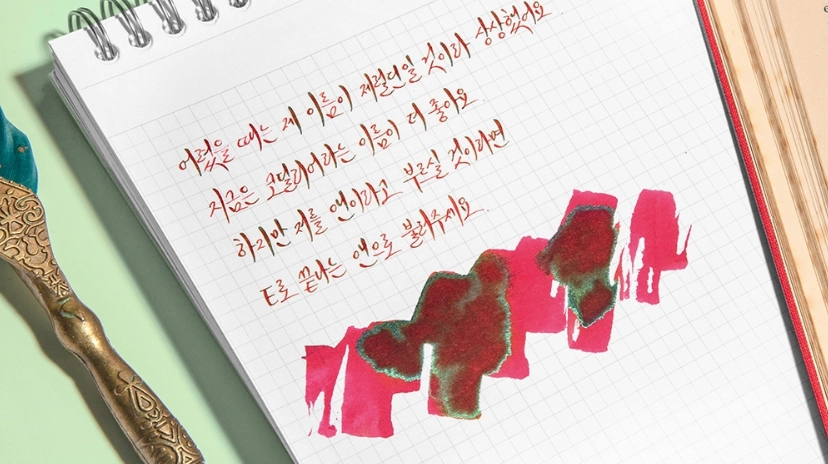 어렸을 때는 제 이름이 제럴딘일 것이라 상상했어요
지금은 코딜리어라는 이름이 더 좋아요
하지만 저를 앤이라고 부르실 것이라면
E로 끝나는 앤으로 불러주세요.